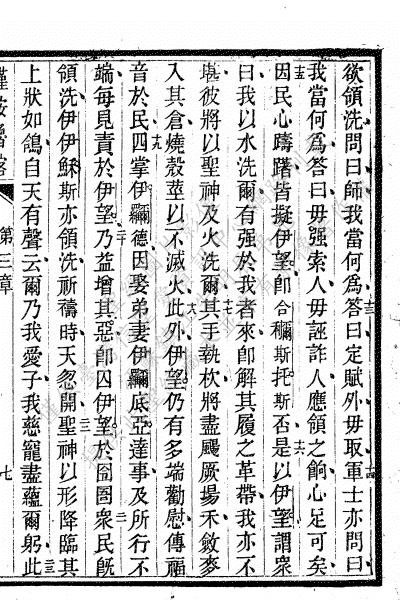 欲領洗問曰師我當何爲答曰定賦外毋取軍士亦問曰
我當何爲答曰毋强索人毋誣詐人應領之餉心足可矣
因民心躊躇皆擬伊望卽合穪斯托斯否是以伊望謂衆
曰我以水洗爾有强於我者來卽解其履之革帶我亦不
堪彼將以聖神及火洗爾其手執杴將盡颺厥場禾斂麥
入其倉燒殻莖以不滅火此外伊望仍有多端勸慰傳福
音於民四掌伊穪德因娶弟妻伊穪底亞達事及所行不
端每見責於伊望乃益增其惡卽囚伊望於囹圄衆民旣
領洗伊伊穌斯亦領洗祈禱時天忽開聖神以形降臨其
上狀如鴿自天有聲云爾乃我愛子我慈寵盡蘊爾躬此
第三章
七